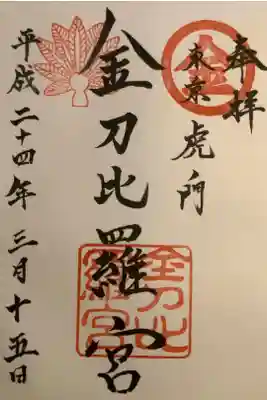 奉拝
東京虎ノ門
金刀比羅宮
平成二十四年三月十五日
金
金刀比羅宮